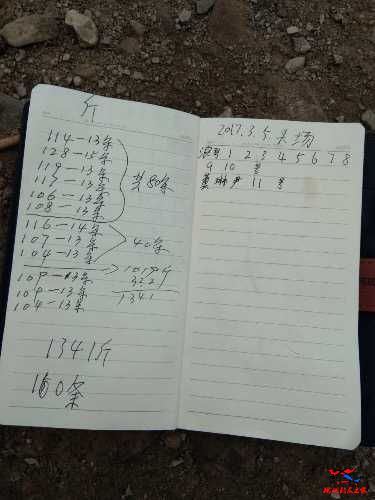 斤
114—13条
128—15条
119—13条
117—13条
106—13条
108—13条
共80条
116—14条
107—13条
104—13条
40条
109—13条
109—13条
104—13条
1019斤
322
1341
1341斤
160条
2017.3.5.
1 2 3 4 5 6 7 8
9 10 号
11 号